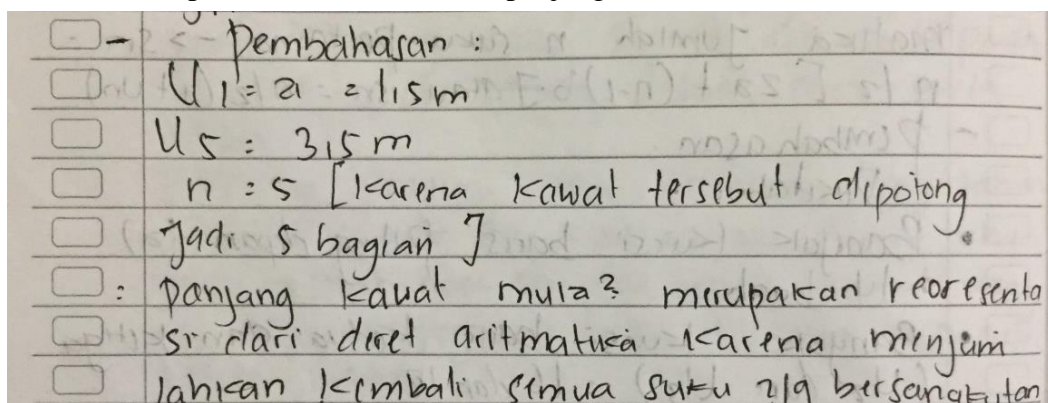 - Pembahasan :
U1 = a = 1,5 m
U5 : 3,5 m
n : 5 [karena kawat tersebut dipotong
jadi 5 bagian ].
: panjang kawat mula² merupakan reoresenta
si dari deret aritmatika karena menjum
lahkan kembali semua suku yg bersangkutan